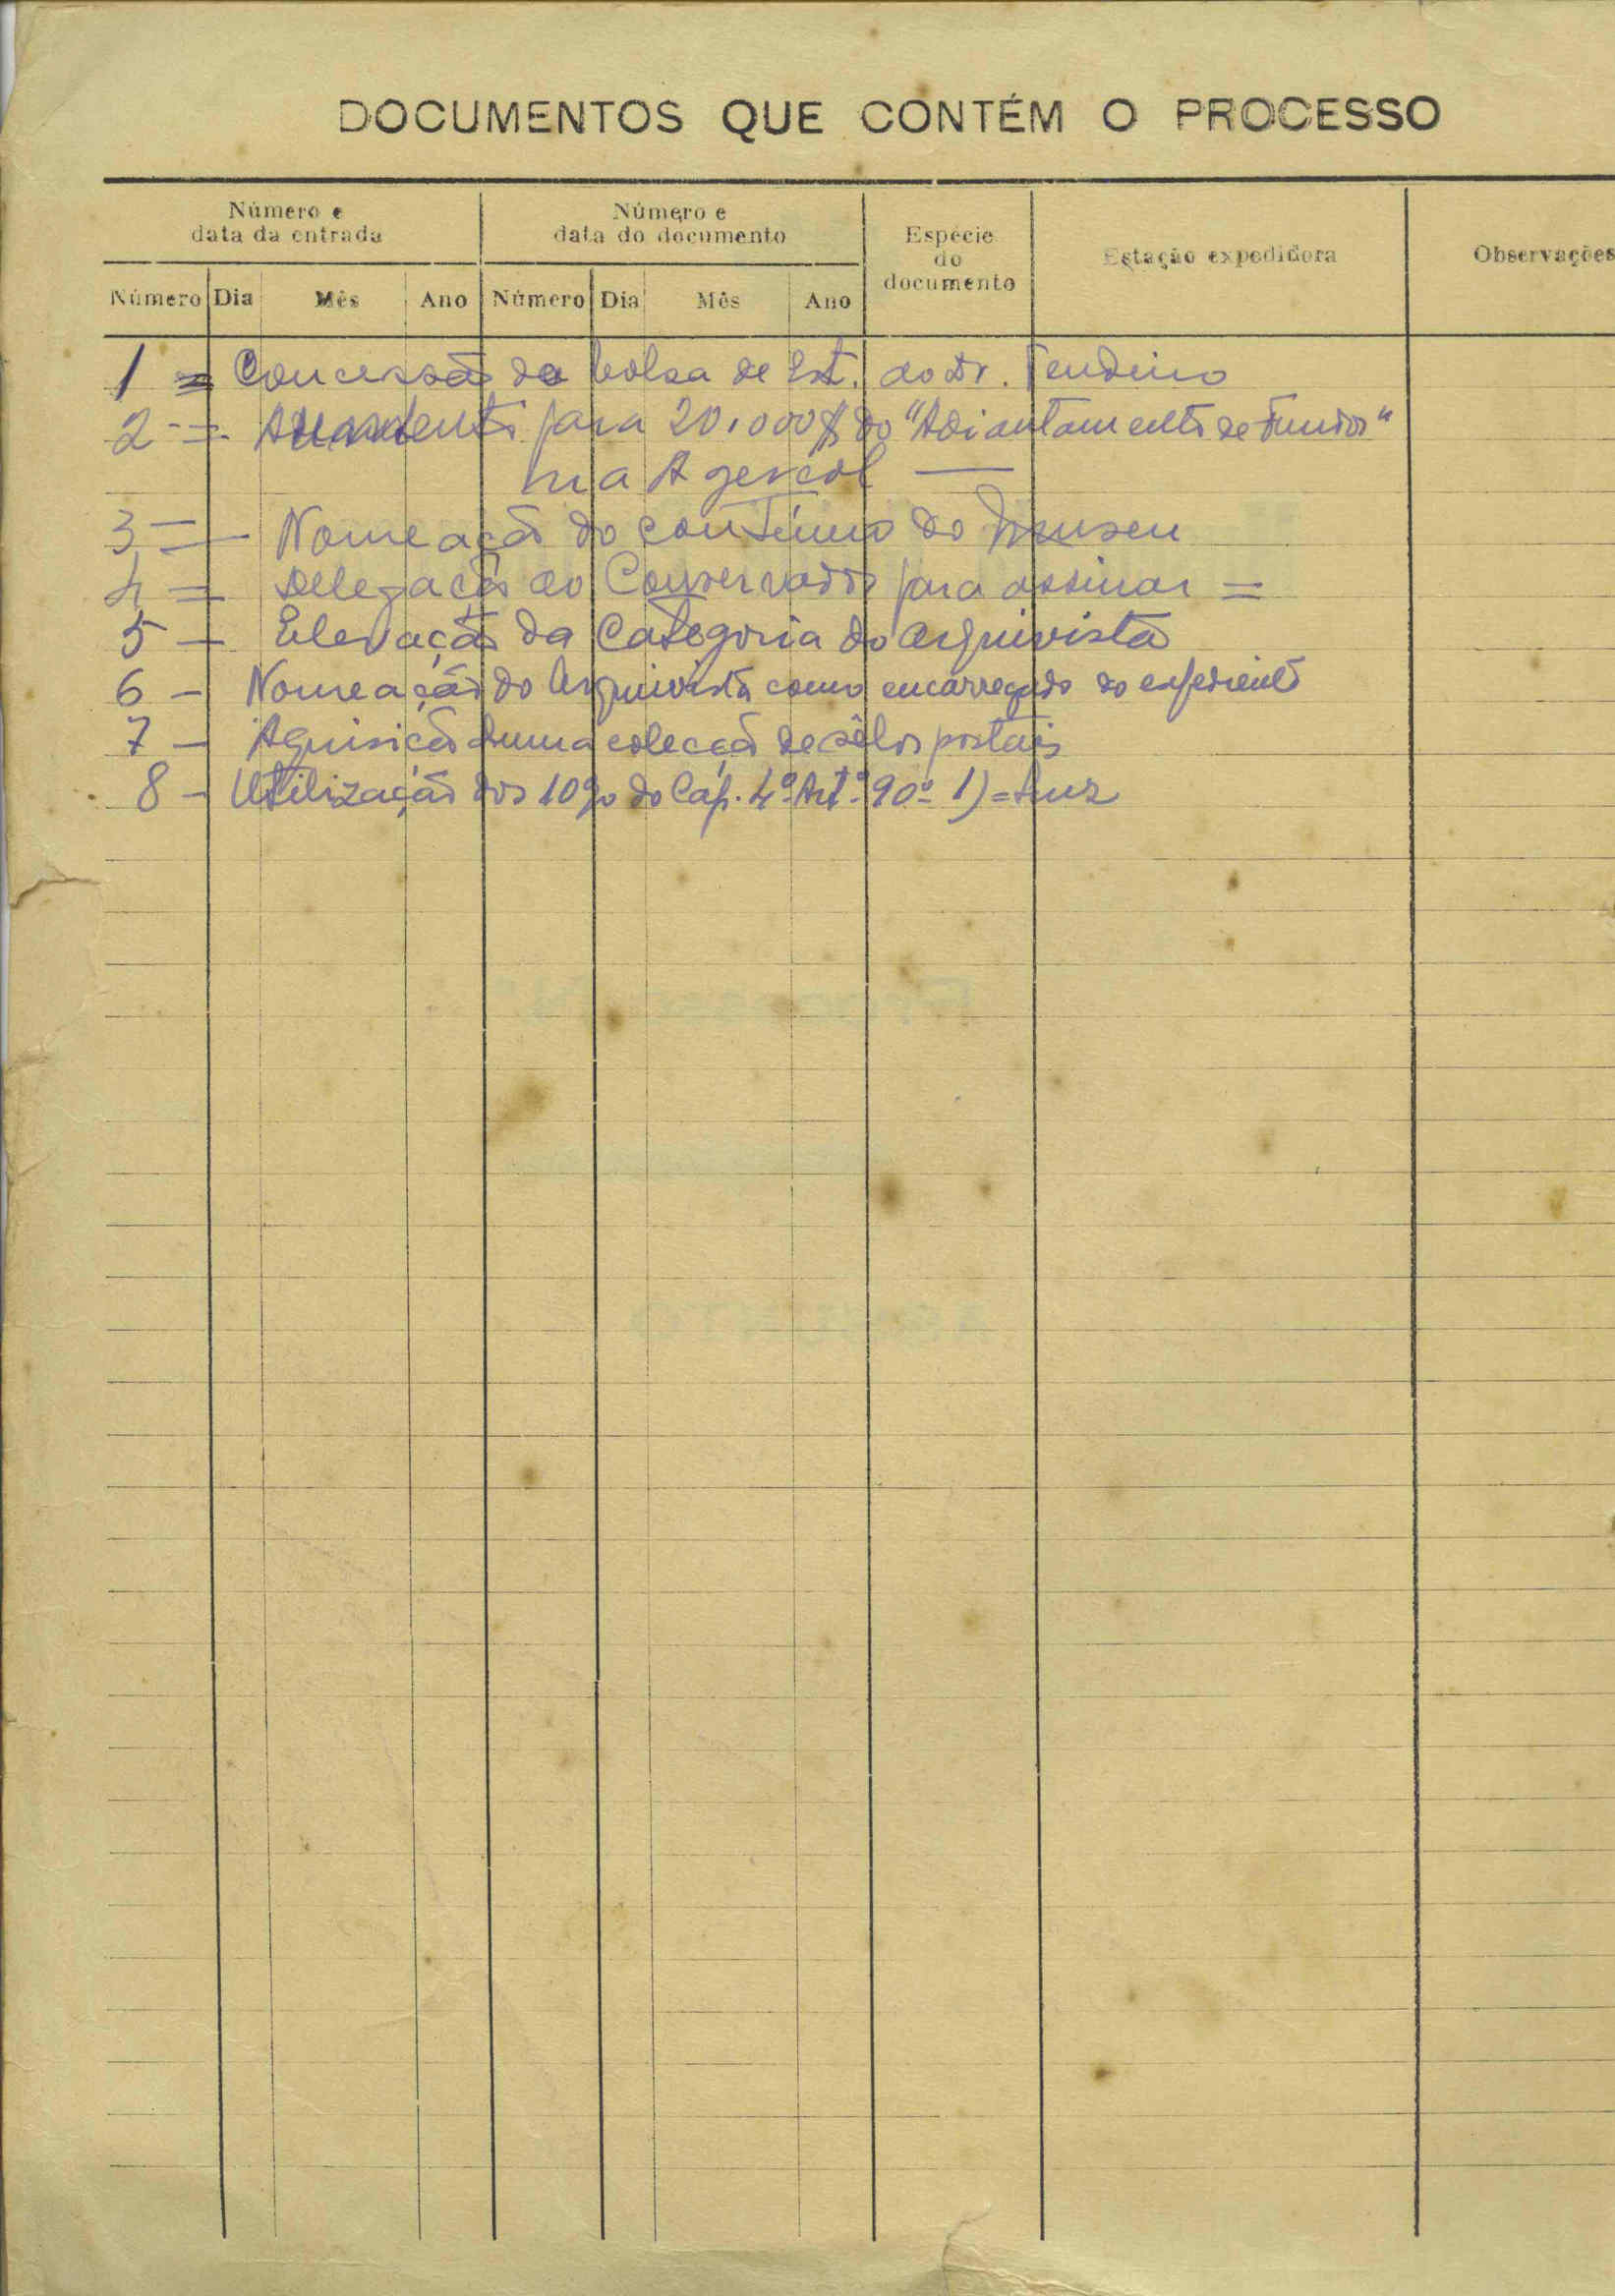 DOCUMENTOS QUE CONTÉM O PROCESSO
Número e data da entrada
Número e data do documento
Espécie do documento
Estação expedidora
Observações
Número Dia Mês Ano Número Dia Mês Ano
1 = Concessão da bolsa de Est. ao Dr. Tendeiro
2 = para 20.000$ do "Adiantamento de Fundos"
na Agercol —
3 — Nomeação do contínuo do Museu
4 = Delegação ao Conservador para assinar =
5 — Elevação da Categoria do arquivista
6 — Nomeação do Arquivista como encarregado do expediente
7 — Aquisição duma colecção de sêlos postais
8 — Utilização dos 10% do Cáp. 4º Artº 90º 1) = Luz